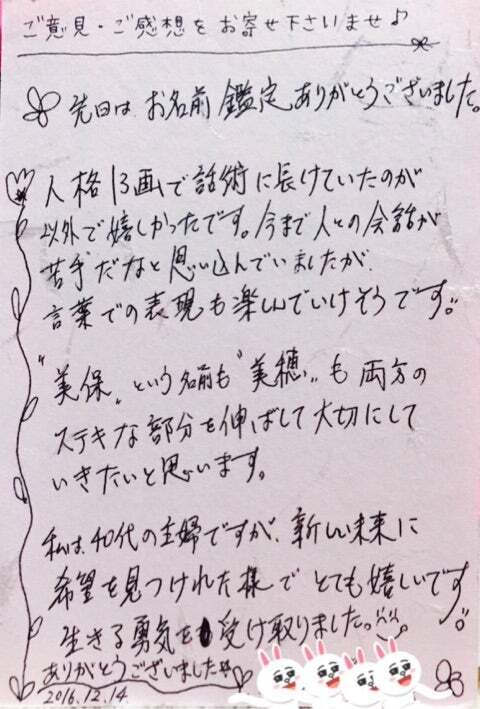 ご意見・ご感想をお寄せ下さいませ♪
先日は お名前 鑑定 ありがとうございました。
人格13画で話術に長けていたのが
以外で嬉しかったです。今まで人との会話が
苦手だなと思い込んでいましたが、
言葉での表現も楽しんでいけそうです。
"美保„という名前も"美穂„も両方の
ステキな部分を伸ばして大切にして
いきたいと思います。
私は、40代の主婦ですが、新しい未来に
希望を見つけれた様で とても嬉しいです
生きる勇気を受け取りました。
ありがとうございました
2016.12.14